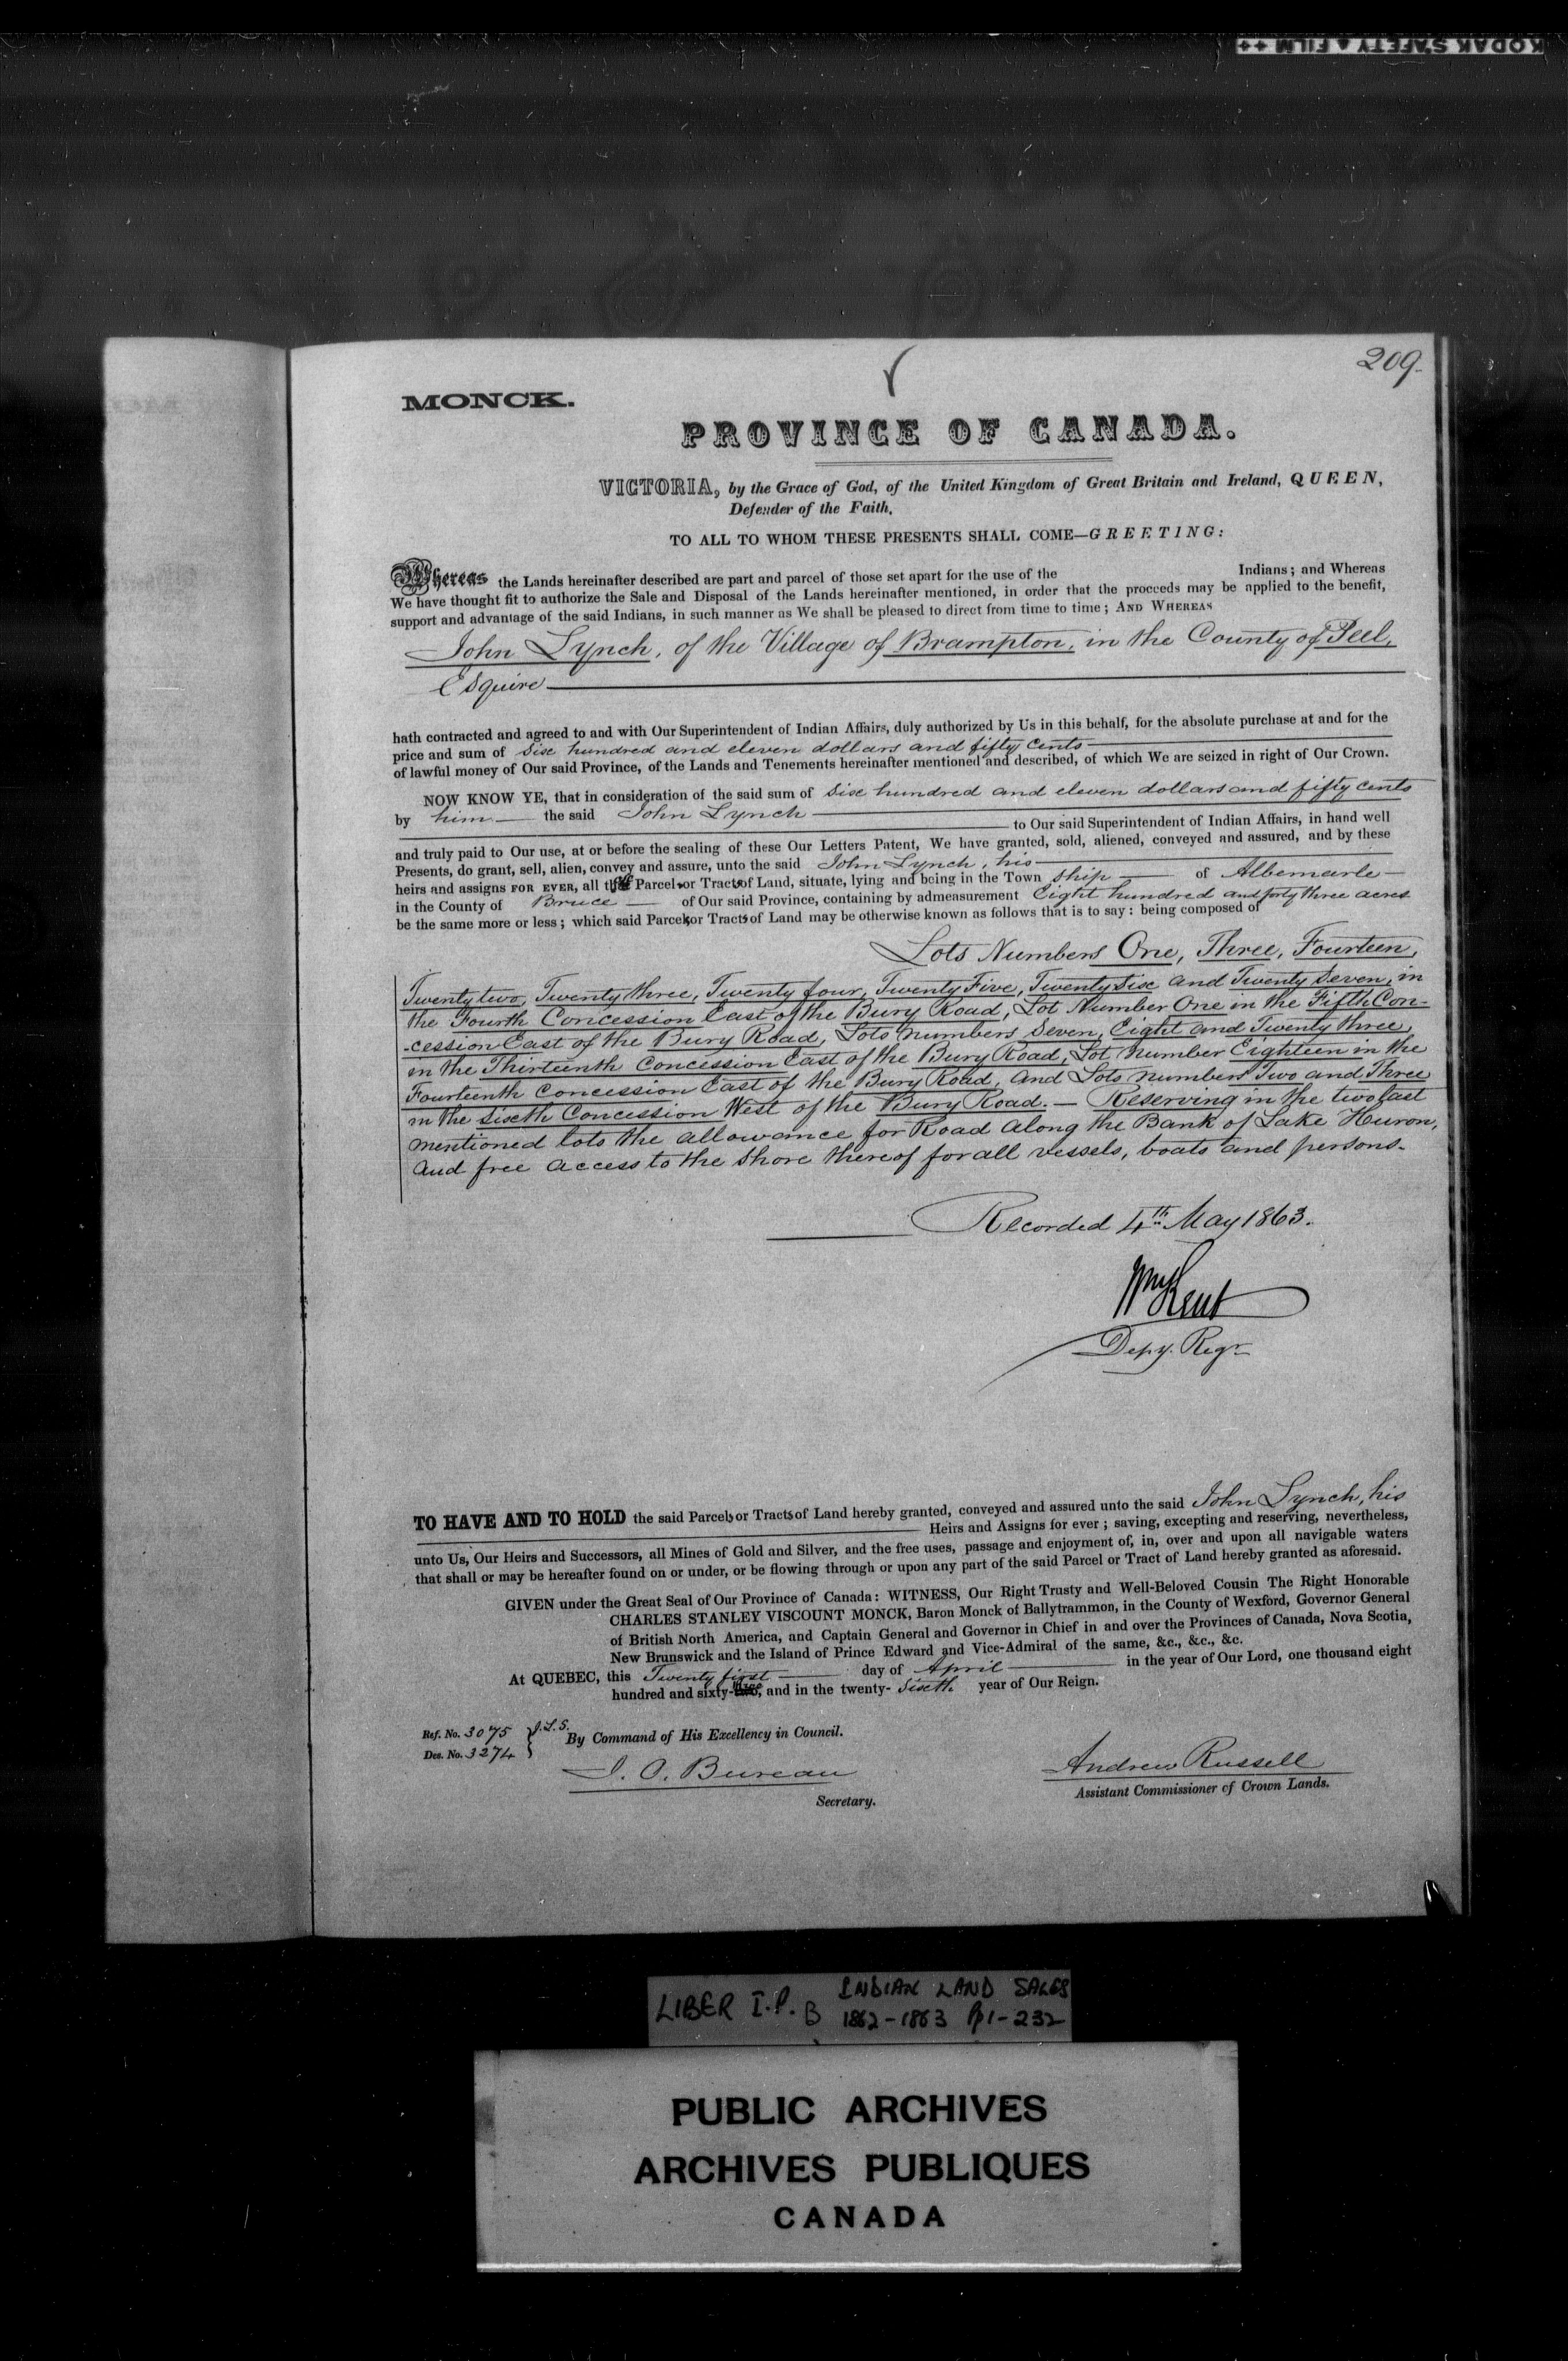 KODAK SAFETY ▲ FILM ++
209.
MONCK.
PROVINCE OF CANADA.
VICTORIA, by the Grace of God, of the United Kingdom of Great Britain and Ireland, QUEEN,
Defender of the Faith.
TO ALL TO WHOM THESE PRESENTS SHALL COME—GREETING:
Whereas the Lands hereinafter described are part and parcel of those set apart for the use of the Indians; and Whereas
We have thought fit to authorize the Sale and Disposal of the Lands hereinafter mentioned, in order that the proceeds may be applied to the benefit,
support and advantage of the said Indians, in such manner as We shall be pleased to direct from time to time; AND WHEREAS
John Lynch, of the Village of Brampton, in the County of Peel,
Esquire
hath contracted and agreed to and with Our Superintendent of Indian Affairs, duly authorized by Us in this behalf, for the absolute purchase at and for the
price and sum of Six hundred and eleven dollars and fifty cents
of lawful money of Our said Province, of the Lands and Tenements hereinafter mentioned and described, of which We are seized in right of Our Crown.
NOW KNOW YE, that in consideration of the said sum of Six hundred and eleven dollars and fifty cents
by him the said John Lynch to Our said Superintendent of Indian Affairs, in hand well
and truly paid to Our use, at or before the sealing of these Our Letters Patent, We have granted, sold, aliened, conveyed and assured, and by these
Presents, do grant, sell, alien, convey and assure, unto the said John Lynch, his
heirs and assigns FOR EVER, all those Parcels or Tracts of Land, situate, lying and being in the Town ship of Albemarle
in the County of Bruce of Our said Province, containing by admeasurement Eight hundred and forty three acres
be the same more or less; which said Parcels or Tracts of Land may be otherwise known as follows that is to say: being composed of
Lots Numbers One, Three, Fourteen,
Twenty two, Twenty three, Twenty four, Twenty Five, Twenty Six and Twenty Seven, in
the Fourth Concession East of the Bury Road, Lot Number One in the Fifth Con-
-cession East of the Bury Road, Lots numbers Seven, Eight and Twenty three,
in the Thirteenth Concession East of the Bury Road, Lot number Eighteen in the
Fourteenth Concession East of the Bury Road, and Lots numbers Two and Three
in the Sixth Concession West of the Bury Road. — Reserving in the two last
mentioned lots the allowance for Road along the Bank of Lake Huron,
and free access to the shore thereof for all vessels, boats and persons.
Recorded 4th May 1863.
Wm Kent
Depy. Regr.
TO HAVE AND TO HOLD the said Parcels or Tracts of Land hereby granted, conveyed and assured unto the said John Lynch, his
Heirs and Assigns for ever; saving, excepting and reserving, nevertheless,
unto Us, Our Heirs and Successors, all Mines of Gold and Silver, and the free uses, passage and enjoyment of, in, over and upon all navigable waters
that shall or may be hereafter found on or under, or be flowing through or upon any part of the said Parcel or Tract of Land hereby granted as aforesaid.
GIVEN under the Great Seal of Our Province of Canada: WITNESS, Our Right Trusty and Well-Beloved Cousin The Right Honorable
CHARLES STANLEY VISCOUNT MONCK, Baron Monck of Ballytrammon, in the County of Wexford, Governor General
of British North America, and Captain General and Governor in Chief in and over the Provinces of Canada, Nova Scotia,
New Brunswick and the Island of Prince Edward and Vice-Admiral of the same, &c., &c., &c.
At QUEBEC, this Twenty first day of April in the year of Our Lord, one thousand eight
hundred and sixty-three, and in the twenty- Sixth year of Our Reign.
Ref. No. 3075 } J.L.S.
Des. No. 3274
By Command of His Excellency in Council.
J. O. Bureau
Secretary.
Andrew Russell
Assistant Commissioner of Crown Lands.
LIBER I.P. B INDIAN LAND SALES
1862-1863 Pp 1-232
PUBLIC ARCHIVES
ARCHIVES PUBLIQUES
CANADA